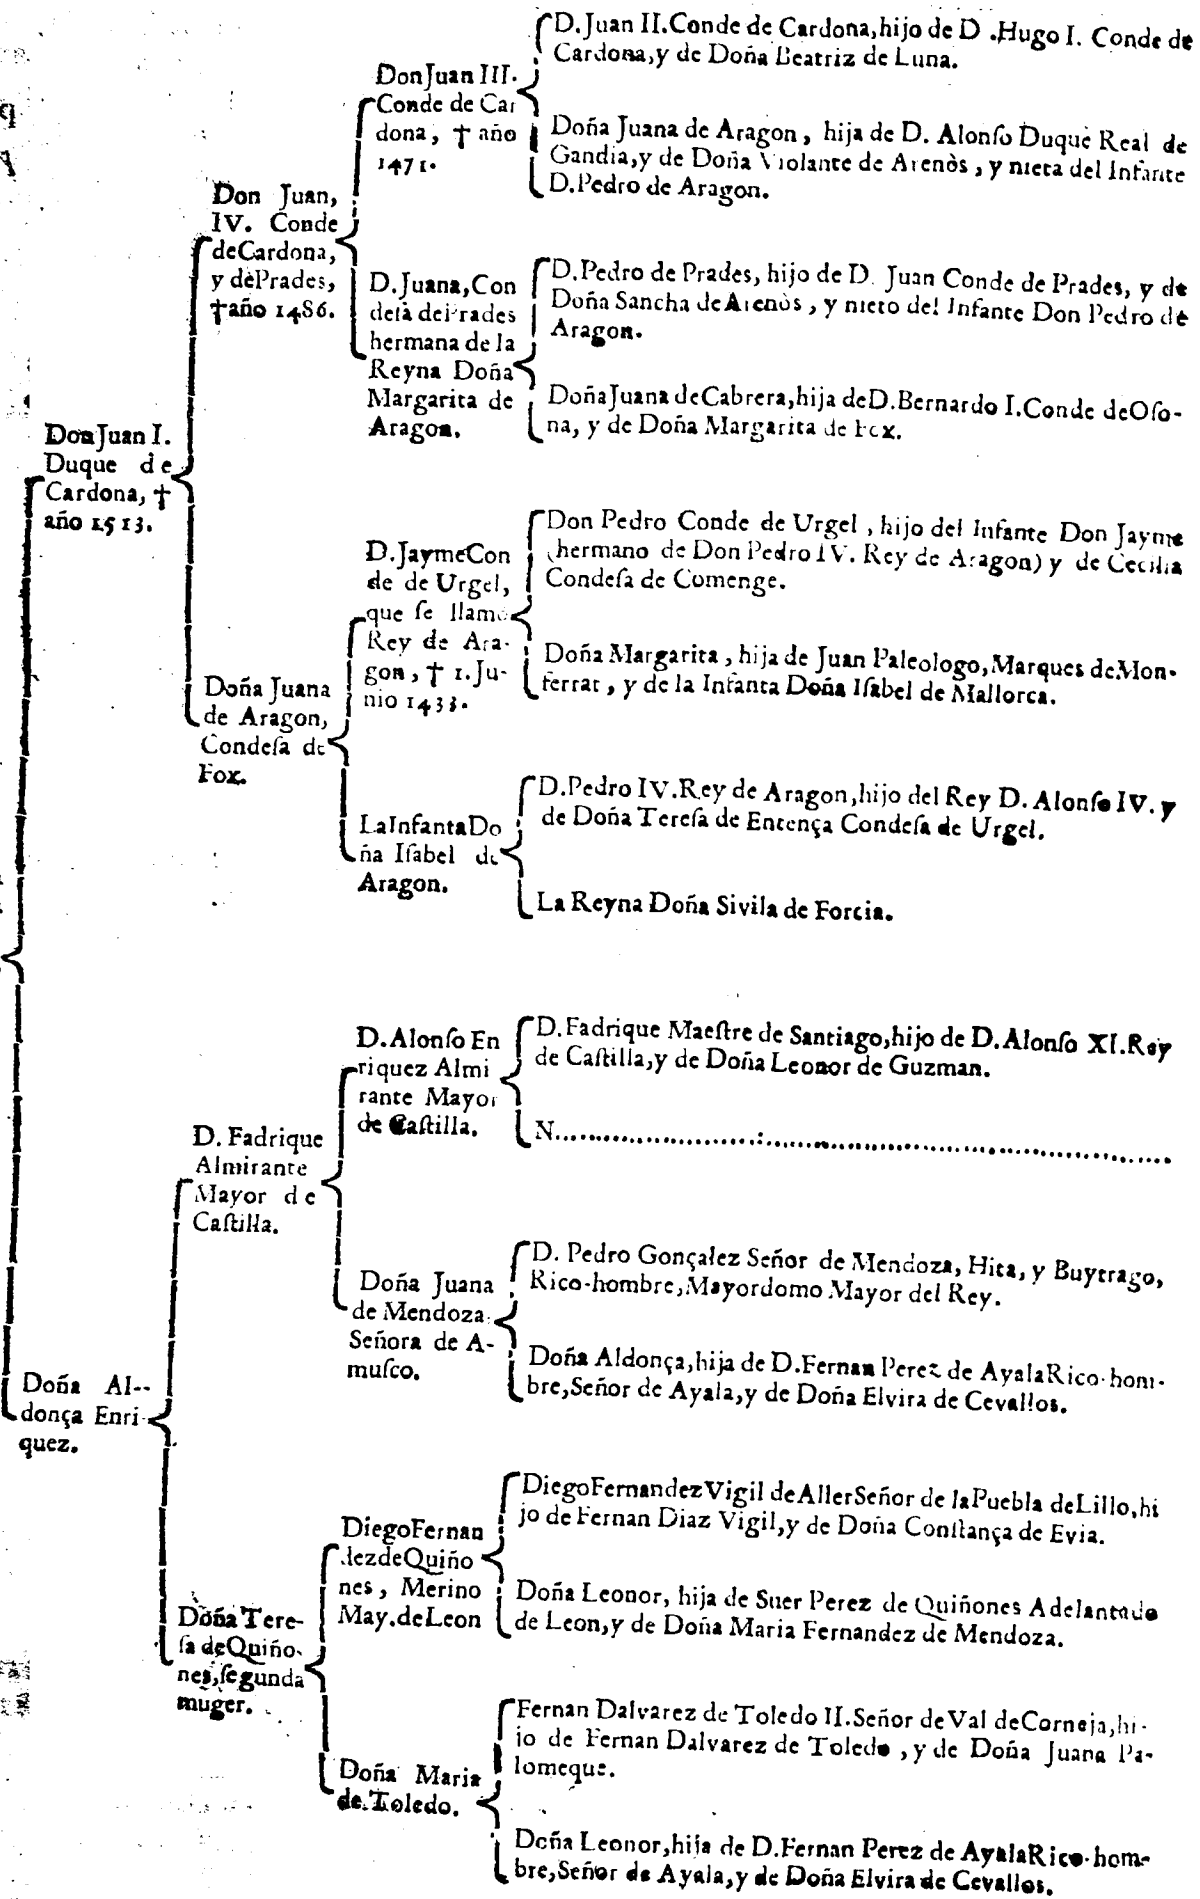 Don Juan I.
Duque de
Cardona, †
año 1513.
Don Juan,
IV. Conde
de Cardona,
y de Prades,
†año 1486.
Don Juan III.
Conde de Car
dona, † año
1471.
D. Juan II. Conde de Cardona, hijo de D. Hugo I. Conde de
Cardona, y de Doña Beatriz de Luna.
Doña Juana de Aragon, hija de D. Alonſo Duque Real de
Gandia, y de Doña Violante de Arenòs, y nieta del Infante
D. Pedro de Aragon.
D. Juana, Con
deſa de Prades
hermana de la
Reyna Doña
Margarita de
Aragon.
D. Pedro de Prades, hijo de D. Juan Conde de Prades, y de
Doña Sancha de Arenòs, y nieto del Infante Don Pedro de
Aragon.
Doña Juana de Cabrera, hija de D. Bernardo I. Conde de Oſo-
na, y de Doña Margarita de Fox.
Doña Juana
de Aragon,
Condeſa de
Fox.
D. Jayme Con
de de Urgel,
que ſe llamò
Rey de Ara-
gon, † 1. Ju-
nio 1433.
Don Pedro Conde de Urgel, hijo del Infante Don Jayme
(hermano de Don Pedro IV. Rey de Aragon) y de Cecilia
Condeſa de Comenge.
Doña Margarita, hija de Juan Paleologo, Marques de Mon-
ferrat, y de la Infanta Doña Iſabel de Mallorca.
La Infanta Do
ña Iſabel de
Aragon.
D. Pedro IV. Rey de Aragon, hijo del Rey D. Alonſo IV. y
de Doña Tereſa de Entença Condeſa de Urgel.
La Reyna Doña Sivila de Forcia.
Doña Al--
donça Enri-
quez.
D. Fadrique
Almirante
Mayor de
Caſtilla.
D. Alonſo En
riquez Almi
rante Mayor
de Caſtilla.
D. Fadrique Maeſtre de Santiago, hijo de D. Alonſo XI. Rey
de Caſtilla, y de Doña Leonor de Guzman.
N..............................................................
Doña Juana
de Mendoza
Señora de A-
muſco.
D. Pedro Gonçalez Señor de Mendoza, Hita, y Buytrago,
Rico-hombre, Mayordomo Mayor del Rey.
Doña Aldonça, hija de D. Fernan Perez de Ayala Rico-hom-
bre, Señor de Ayala, y de Doña Elvira de Cevallos.
Doña Tere-
ſa de Quiño-
nes, ſegunda
muger.
Diego Fernan
dez de Quiño
nes, Merino
May. de Leon
Diego Fernandez Vigil de Aller Señor de la Puebla de Lillo, hi
jo de Fernan Diaz Vigil, y de Doña Conſtança de Evia.
Doña Leonor, hija de Suer Perez de Quiñones Adelantado
de Leon, y de Doña Maria Fernandez de Mendoza.
Doña Maria
de Toledo.
Fernan Dalvarez de Toledo II. Señor de Val de Corneja, hi-
jo de Fernan Dalvarez de Toledo, y de Doña Juana Pa-
lomeque.
Doña Leonor, hija de D. Fernan Perez de Ayala Rico-hom-
bre, Señor de Ayala, y de Doña Elvira de Cevallos.